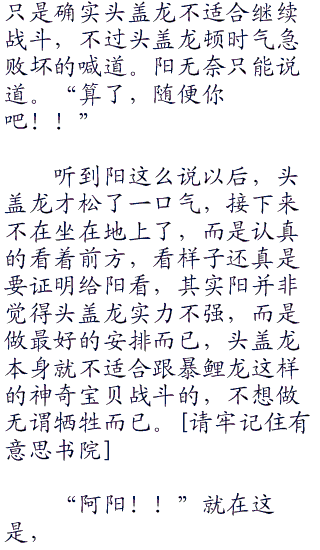 只是确实头盖龙不适合继续
战斗，不过头盖龙顿时气急
败坏的喊道。阳无奈只能说
道。“算了，随便你
吧！！”
听到阳这么说以后，头
盖龙才松了一口气，接下来
不在坐在地上了，而是认真
的看着前方，看样子还真是
要证明给阳看，其实阳并非
觉得头盖龙实力不强，而是
做最好的安排而已，头盖龙
本身就不适合跟暴鲤龙这样
的神奇宝贝战斗的，不想做
无谓牺牲而已。[请牢记住有
意思书院]
“阿阳！！”就在这
是，